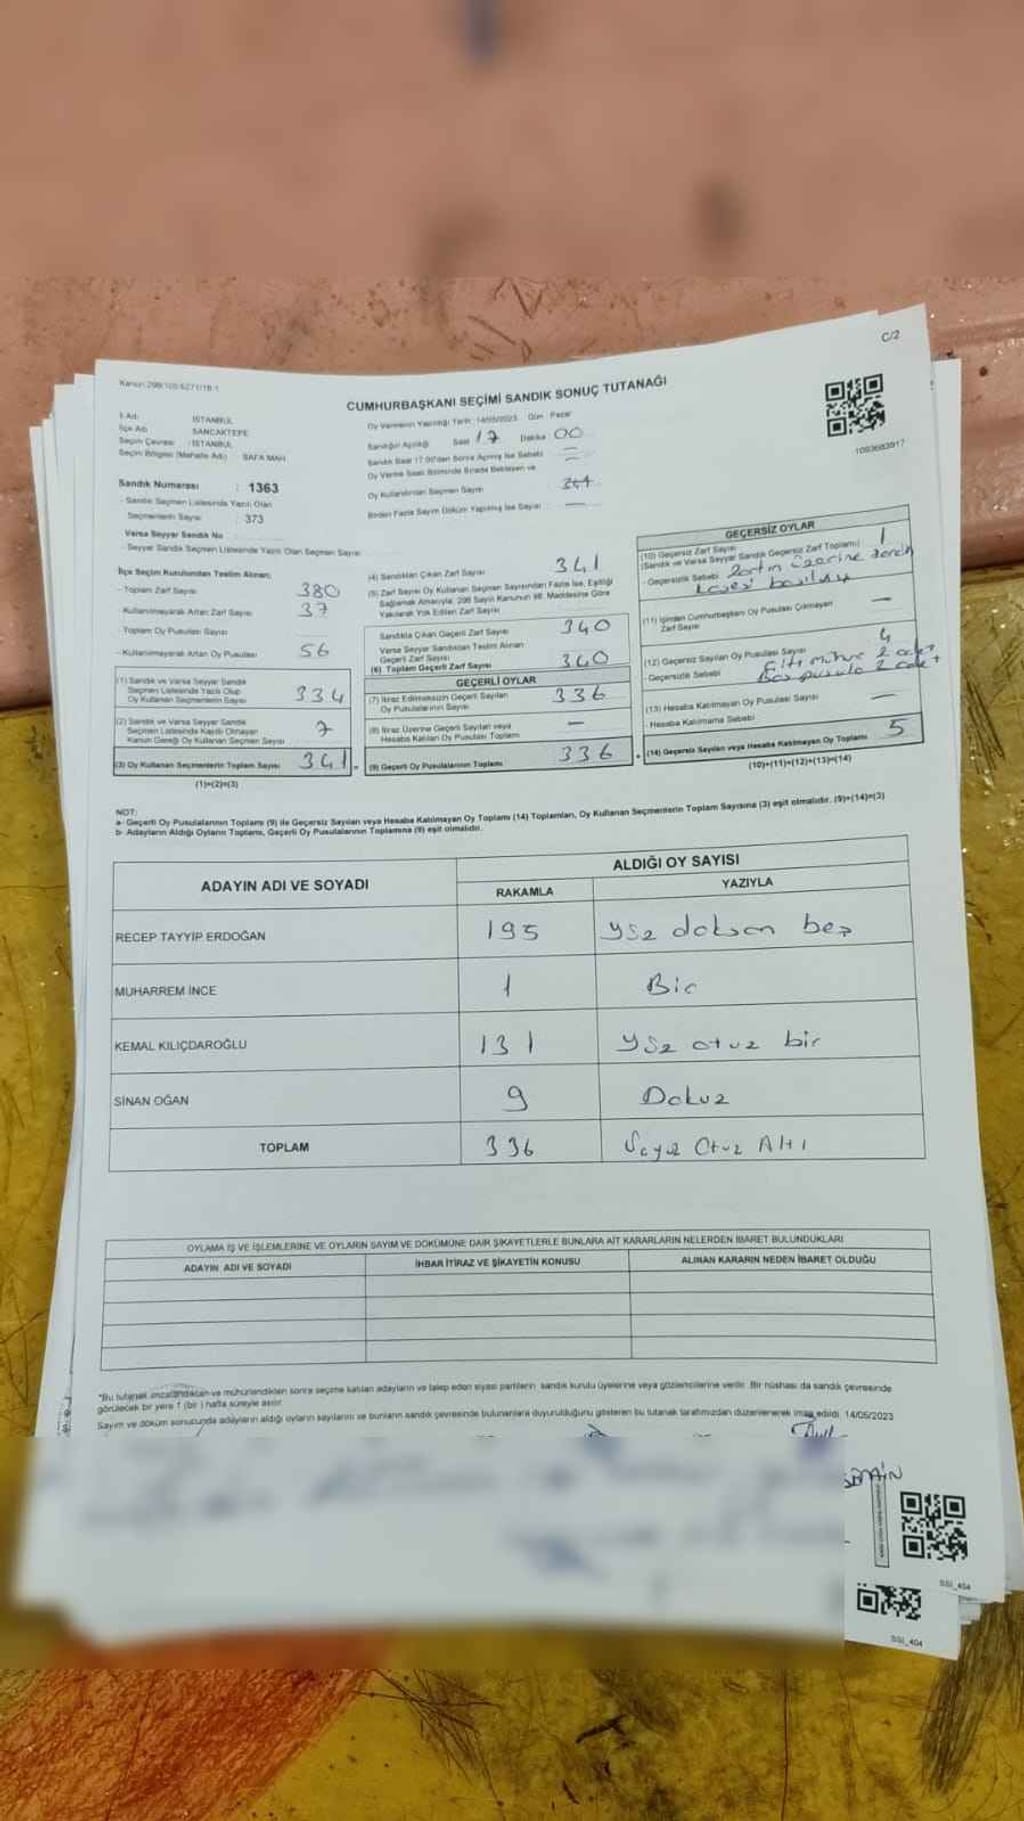 C/2
Kanun:298/105-5271/18-1
CUMHURBAŞKANI SEÇİMİ SANDIK SONUÇ TUTANAĞI
1093683917
İl Adı : İSTANBUL
İlçe Adı : SANCAKTEPE
Seçim Çevresi : İSTANBUL
Seçim Bölgesi (Mahalle Adı) SAFA MAH.
Oy Vermenin Yapıldığı Tarih: 14/05/2023 Gün : Pazar
Sandığın Açılışı Saat 17 Dakika 00
Sandık Saat 17.00'den Sonra Açılmış İse Sebebi
Oy Verme Saati Bitiminde Sırada Bekleyen ve
Oy Kullandırılan Seçmen Sayısı
Birden Fazla Sayım Döküm Yapılmış İse Sayısı —
Sandık Numarası : 1363
- Sandık Seçmen Listesinde Yazılı Olan
Seçmenlerin Sayısı : 373
Varsa Seyyar Sandık No
- Seyyar Sandık Seçmen Listesinde Yazılı Olan Seçmen Sayısı
İlçe Seçim Kurulundan Teslim Alınan;
- Toplam Zarf Sayısı 380
- Kullanılmayarak Artan Zarf Sayısı 37
- Toplam Oy Pusulası Sayısı
- Kullanılmayarak Artan Oy Pusulası 56
(1) Sandık ve Varsa Seyyar Sandık
Seçmen Listesinde Yazılı Olup
Oy Kullanan Seçmenlerin Sayısı 334
(2) Sandık ve Varsa Seyyar Sandık
Seçmen Listesinde Kayıtlı Olmayan
Kanun Gereği Oy Kullanan Seçmen Sayısı 7
(3) Oy Kullanan Seçmenlerin Toplam Sayısı 341
(1)+(2)=(3)
(4) Sandıktan Çıkan Zarf Sayısı 341
(5) Zarf Sayısı Oy Kullanan Seçmen Sayısından Fazla İse, Eşitliği
Sağlamak Amacıyla, 298 Sayılı Kanunun 98. Maddesine Göre
Yakılarak Yok Edilen Zarf Sayısı
Sandıkta Çıkan Geçerli Zarf Sayısı 340
Varsa Seyyar Sandıktan Teslim Alınan
Geçerli Zarf Sayısı
(6) Toplam Geçerli Zarf Sayısı 340
GEÇERLİ OYLAR
(7) İtiraz Edilmeksizin Geçerli Sayılan
Oy Pusulalarının Sayısı 336
(8) İtiraz Üzerine Geçerli Sayılan veya
Hesaba Katılan Oy Pusulası Toplamı —
(9) Geçerli Oy Pusulalarının Toplamı 336
GEÇERSİZ OYLAR
(10) Geçersiz Zarf Sayısı
(Sandık ve Varsa Seyyar Sandık Geçersiz Zarf Toplamı) 1
- Geçersizlik Sebebi Zarfın üzerine tercih
kaşesi basılmış
(11) İçinden Cumhurbaşkanı Oy Pusulası Çıkmayan
Zarf Sayısı —
(12) Geçersiz Sayılan Oy Pusulası Sayısı 4
- Geçersizlik Sebebi Çift mühür 2 adet
Boş pusula 2 adet
(13) Hesaba Katılmayan Oy Pusulası Sayısı —
- Hesaba Katılmama Sebebi
(14) Geçersiz Sayılan veya Hesaba Katılmayan Oy Toplamı 5
(10)+(11)+(12)+(13)=(14)
NOT:
a- Geçerli Oy Pusulalarının Toplamı (9) ile Geçersiz Sayılan veya Hesaba Katılmayan Oy Toplamı (14) Toplamları, Oy Kullanan Seçmenlerin Toplam Sayısına (3) eşit olmalıdır. (9)+(14)=(3)
b- Adayların Aldığı Oyların Toplamı, Geçerli Oy Pusulalarının Toplamına (9) eşit olmalıdır.
ADAYIN ADI VE SOYADI
ALDIĞI OY SAYISI
RAKAMLA YAZIYLA
RECEP TAYYİP ERDOĞAN 195 Yüz doksan beş
MUHARREM İNCE 1 Bir
KEMAL KILIÇDAROĞLU 131 Yüz otuz bir
SİNAN OĞAN 9 Dokuz
TOPLAM 336 Üçyüz Otuz Altı
OYLAMA İŞ VE İŞLEMLERİNE VE OYLARIN SAYIM VE DÖKÜMÜNE DAİR ŞİKAYETLERLE BUNLARA AİT KARARLARIN NELERDEN İBARET BULUNDUKLARI
ADAYIN ADI VE SOYADI İHBAR İTİRAZ VE ŞİKAYETİN KONUSU ALINAN KARARIN NEDEN İBARET OLDUĞU
*Bu tutanak imzalandıktan ve mühürlendikten sonra seçime katılan adayların ve talep eden siyasi partilerin sandık kurulu üyelerine veya gözlemcilerine verilir. Bir nüshası da sandık çevresinde
görülecek bir yere 1 (bir) hafta süreyle asılır.
Sayım ve döküm sonucunda adayların aldığı oyların sayılarını ve bunların sandık çevresinde bulunanlara duyurulduğunu gösteren bu tutanak tarafımızdan düzenlenerek imza edildi. 14/05/2023
SSI_404
SSI_404